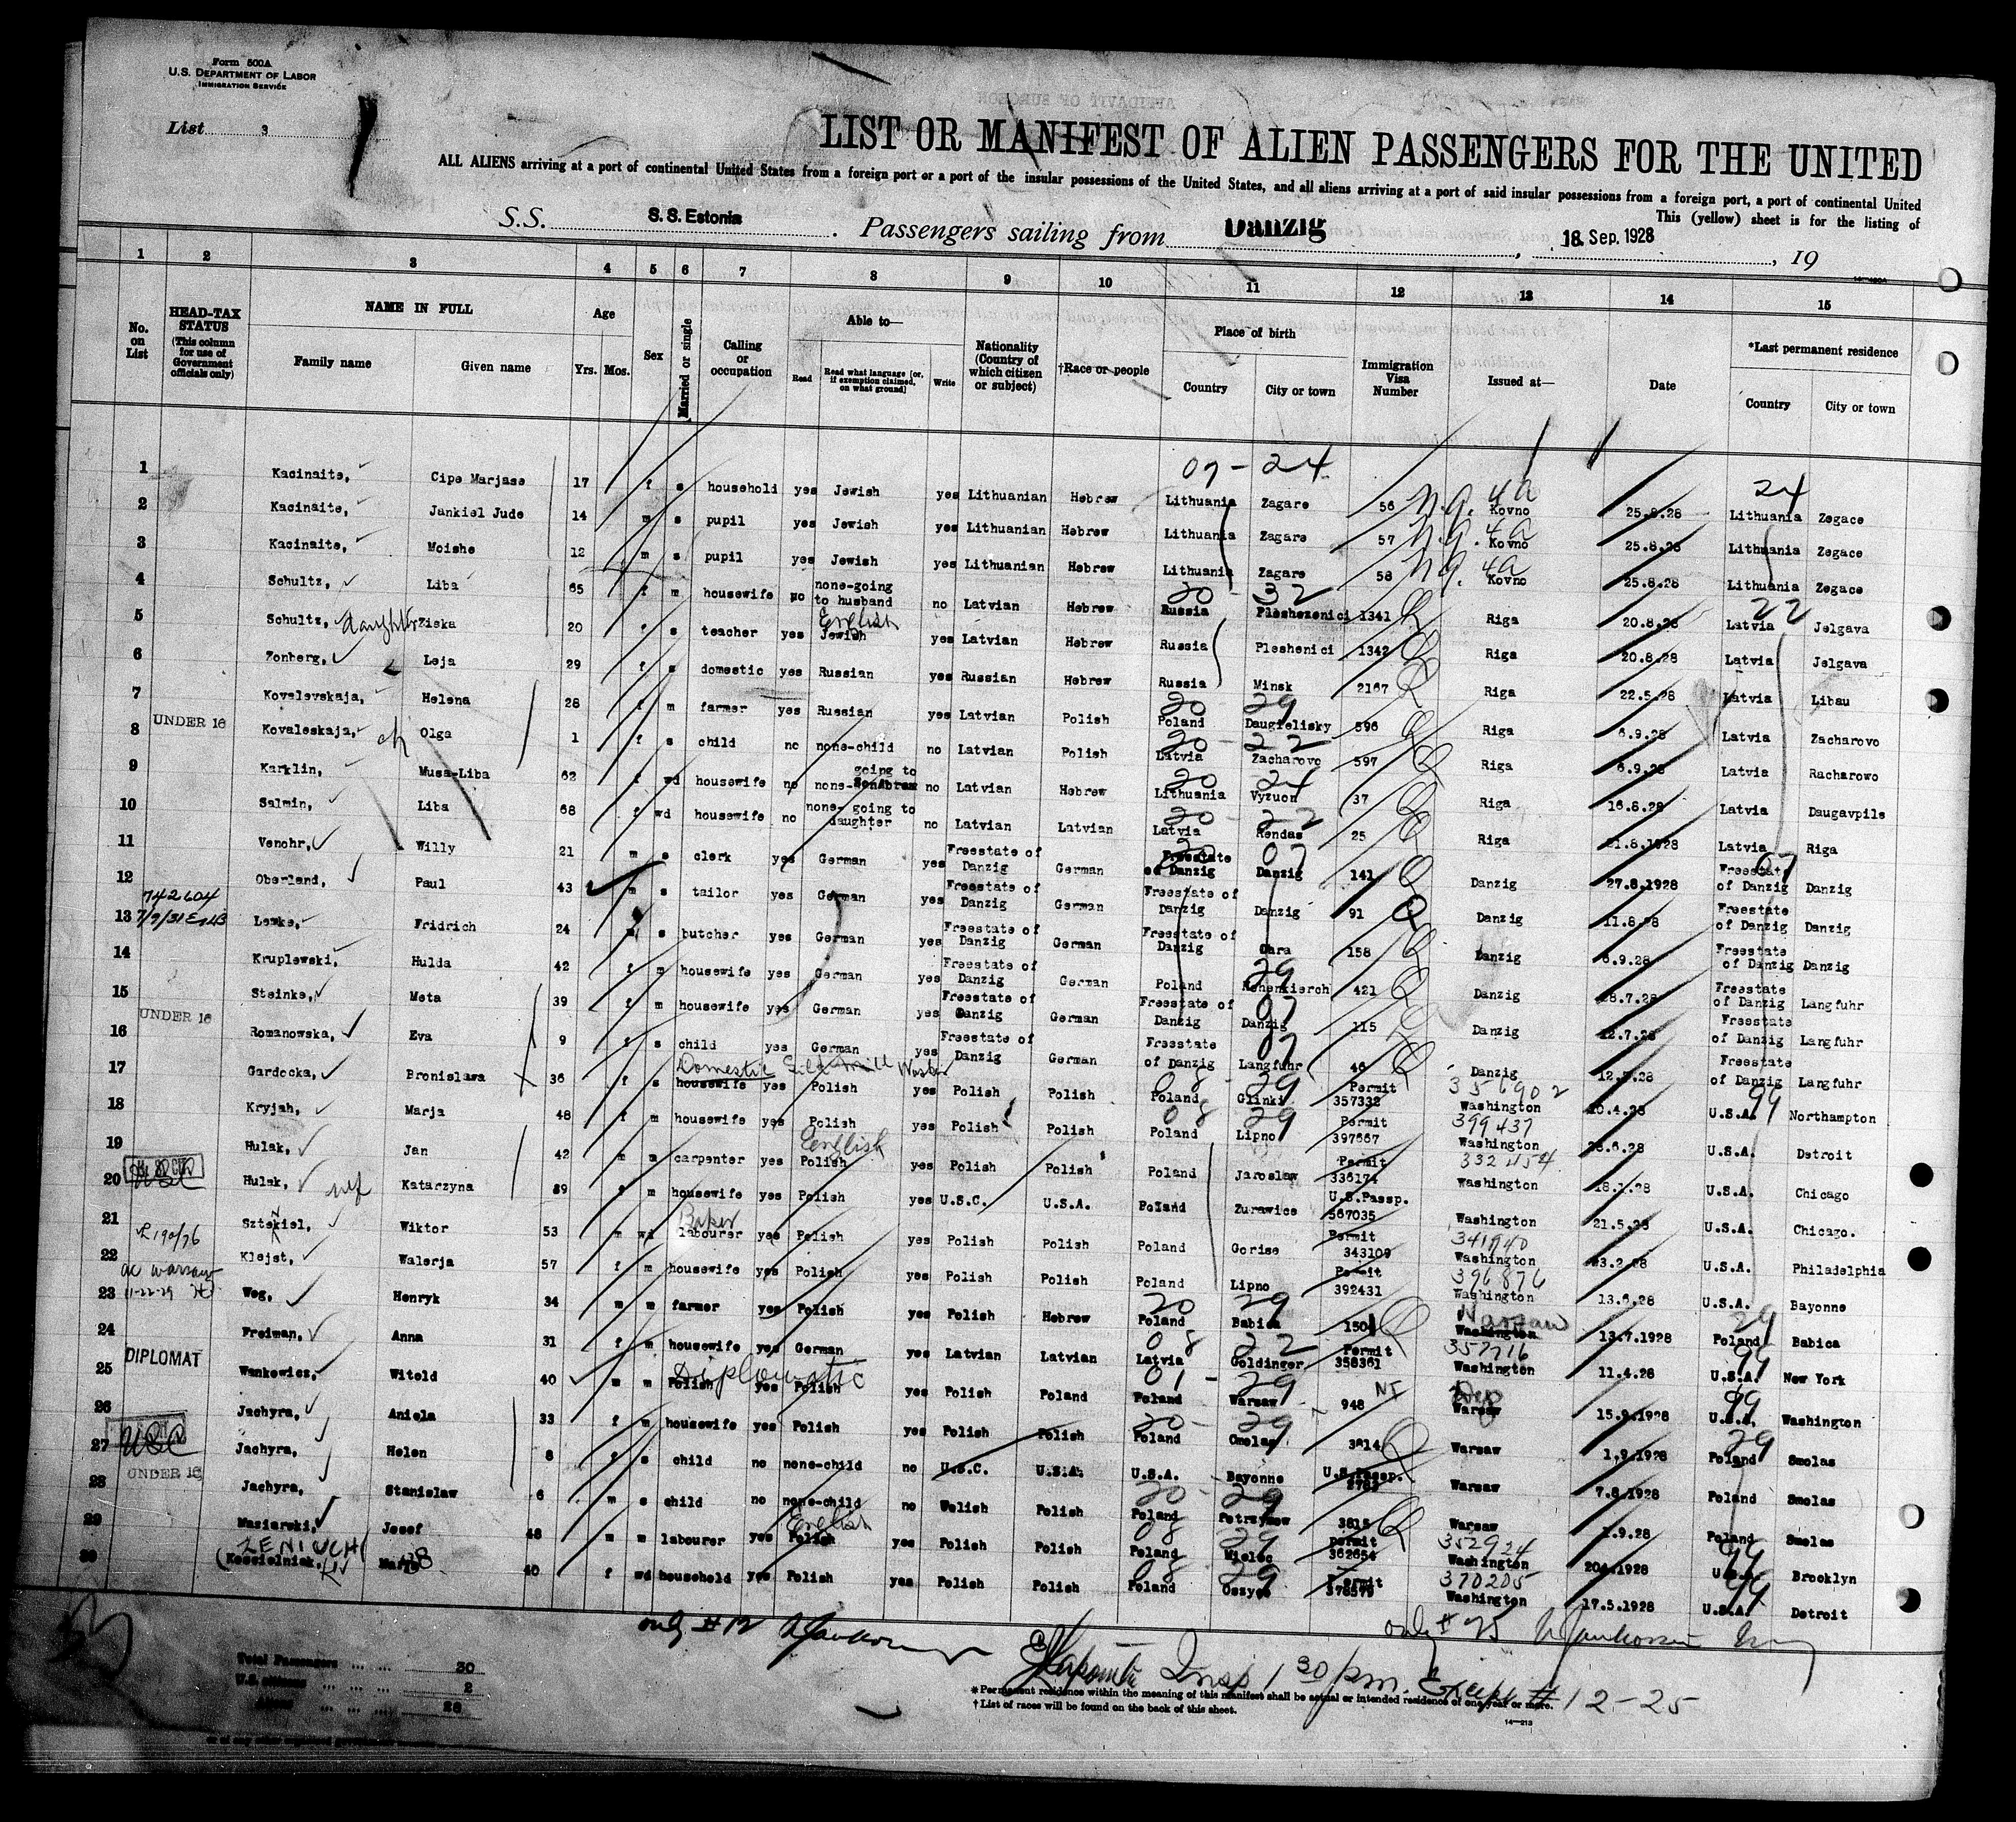 Form 500A
U.S. DEPARTMENT OF LABOR
IMMIGRATION SERVICE
List 3
LIST OR MANIFEST OF ALIEN PASSENGERS FOR THE UNITED
ALL ALIENS arriving at a port of continental United States from a foreign port or a port of the insular possessions of the United States, and all aliens arriving at a port of said insular possessions from a foreign port, a port of continental United
This (yellow) sheet is for the listing of
S.S. S. S. Estonia. Passengers sailing from Danzig, 18. Sep. 1928, 19
1 2 3 4 5 6 7 8 9 10 11 12 13 14 15
No. on List
HEAD-TAX STATUS (This column for use of Government officials only)
NAME IN FULL
Family name Given name
Age Yrs. Mos.
Sex
Married or single
Calling or occupation
Able to—
Read Read what language [or, if exemption claimed, on what ground] Write
Nationality (Country of which citizen or subject)
†Race or people
Place of birth
Country City or town
Immigration Visa Number
Issued at—
Date
*Last permanent residence
Country City or town
07-24 24
1 Kacinaite, Cipe Marjase 17 f s household yes Jewish yes Lithuanian Hebrew Lithuania Zagare 56 n.q. 4a Kovno 25.8.28 Lithuania Zegace
2 Kacinaite, Jankiel Jude 14 m s pupil yes Jewish yes Lithuanian Hebrew Lithuania Zagare 57 n.q. 4a Kovno 25.8.28 Lithuania Zegace
3 Kacinaite, Moishe 12 m s pupil yes Jewish yes Lithuanian Hebrew Lithuania Zagare 58 n.q. 4a Kovno 25.8.28 Lithuania Zegace
20-32 22
4 Schultz, Liba 65 f m housewife no none-going to husband no Latvian Hebrew Russia Pleshezenici 1341 Riga 20.8.28 Latvia Jelgava
5 Schultz, daughter Ziska 20 f s teacher yes English Jewish yes Latvian Hebrew Russia Pleshenici 1342 Riga 20.8.28 Latvia Jelgava
6 Zonberg, Leja 29 f s domestic yes Russian yes Russian Hebrew Russia Minsk 2167 Riga 22.5.28 Latvia Libau
20 29
7 Kovalevskaja, Helena 28 f m farmer yes Russian yes Latvian Polish Poland Daugielisky 596 Riga 6.9.28 Latvia Zacharovo
UNDER 16
20-22
8 Kovaleskaja, ch Olga 1 f s child no none-child no Latvian Polish Latvia Zacharovo 597 Riga 6.9.28 Latvia Racharowo
20 24
9 Karklin, Musa-Liba 62 f wd housewife no none-going to SonAbram no Latvian Hebrew Lithuania Vyzuon 37 Riga 16.8.28 Latvia Daugavpils
20-22
10 Salmin, Liba 68 f wd housewife no none-going to daughter no Latvian Latvian Latvia Rendas 25 Riga 21.8.1928 Latvia Riga
20 07 07
11 Venohr, Willy 21 m s clerk yes German yes Freestate of Danzig German Freestate of Danzig Danzig 141 Danzig 27.8.1928 Freestate of Danzig Danzig
12 Oberland, Paul 43 m s tailor yes German yes Freestate of Danzig German Freestate of Danzig Danzig 91 Danzig 11.8.28 Freestate of Danzig Danzig
742604
7/9/31
13 Lemke, Fridrich 24 m s butcher yes German yes Freestate of Danzig German Freestate of Danzig Ohra 158 Danzig 6.9.28 Freestate of Danzig Danzig
29
14 Kruplewski, Hulda 42 f m housewife yes German yes Freestate of Danzig German Poland Hohenkierch 421 Danzig 28.7.28 Freestate of Danzig Langfuhr
07
15 Steinke, Meta 39 f m housewife yes German yes Freestate of Danzig German Freestate of Danzig Danzig 115 Danzig 12.7.28 Freestate of Danzig Langfuhr
UNDER 16
07
16 Romanowska, Eva 9 f s child yes German yes Freestate of Danzig German Freestate of Danzig Langfuhr 46 Danzig 12.7.28 Freestate of Danzig Langfuhr
Domestic 08-29 356902 99
17 Gardocka, Bronislawa 36 f s housewife yes Polish yes Polish Polish Poland Glinki Permit 357332 Washington 10.4.28 U.S.A. Northampton
08 29 399437
18 Kryjah, Marja 48 f m housewife yes Polish yes Polish Polish Poland Lipno Permit 397667 Washington 26.6.28 U.S.A. Detroit
English 332454
19 Hulak, Jan 42 m m carpenter yes Polish yes Polish Polish Poland Jaroslaw Permit 336174 Washington 18.1.28 U.S.A. Chicago
USC
20 Hulak, wf Katarzyna 39 f m housewife yes Polish yes U.S.C. U.S.A. Poland Zurawice U.S.Passp. 567035 Washington 21.5.28 U.S.A. Chicago.
Baker 341940
21 Sztekiel, Wiktor 53 m wd labourer yes Polish yes Polish Polish Poland Gorise Permit 343109 Washington 23.2.28 U.S.A. Philadelphia
396876
22 Klejst, Walerja 57 f m housewife yes Polish yes Polish Polish Poland Lipno Permit 392431 Washington 13.6.28 U.S.A. Bayonne
ac Warsaw
11-22-29
20 29 Warsaw 29
23 Weg, Henryk 34 m m farmer yes Polish yes Polish Hebrew Poland Babica 1504 Washington 13.7.1928 Poland Babica
08 22 357716 99
24 Freiman, Anna 31 f m housewife yes German yes Latvian Latvian Latvia Goldinger Permit 358361 Washington 11.4.28 U.S.A. New York
DIPLOMAT
Diplomatic 01-29 NI Dep 99
25 Wankowicz, Witold 40 m m Polish yes Polish yes Polish Poland Poland Warsaw 948 Warsaw 15.9.1928 U.S.A. Washington
20-29 29
26 Jachyra, Aniela 33 f m housewife yes Polish yes Polish Polish Poland Omolas 3814 Warsaw 1.9.1928 Poland Smolas
USC
27 Jachyra, Helen 8 f s child no none-child no U.S.C. U.S.A. U.S.A. Bayonne U.S.Passp. 2763 Warsaw 7.8.1928 Poland Smolas
UNDER 16
20-29
28 Jachyra, Stanislaw 6 m s child no none-child no Wolish Polish Poland Petrzymow 3815 Warsaw 1.9.28 Poland Smolas
English 08 29 352924 99
29 Maziarski, Josef 48 m m labourer yes Polish yes Polish Polish Poland Mielec permit 362654 Washington 204.1928 U.S.A. Brooklyn
ZENIUCH 08 29 370205 99
30 (Koscielniak, Marya 40 f wd household yes Polish yes Polish Polish Poland Oszyce Permit 376579 Washington 17.5.1928 U.S.A. Detroit
only #12 only #25
Insp 1 30 pm. Except #12-25
Total Passengers ... ... 30
U.S. citizens ... ... ... 2
Aliens ... ... ... 28
*Permanent residence within the meaning of this manifest shall be actual or intended residence of one year or more.
†List of races will be found on the back of this sheet.
14—213